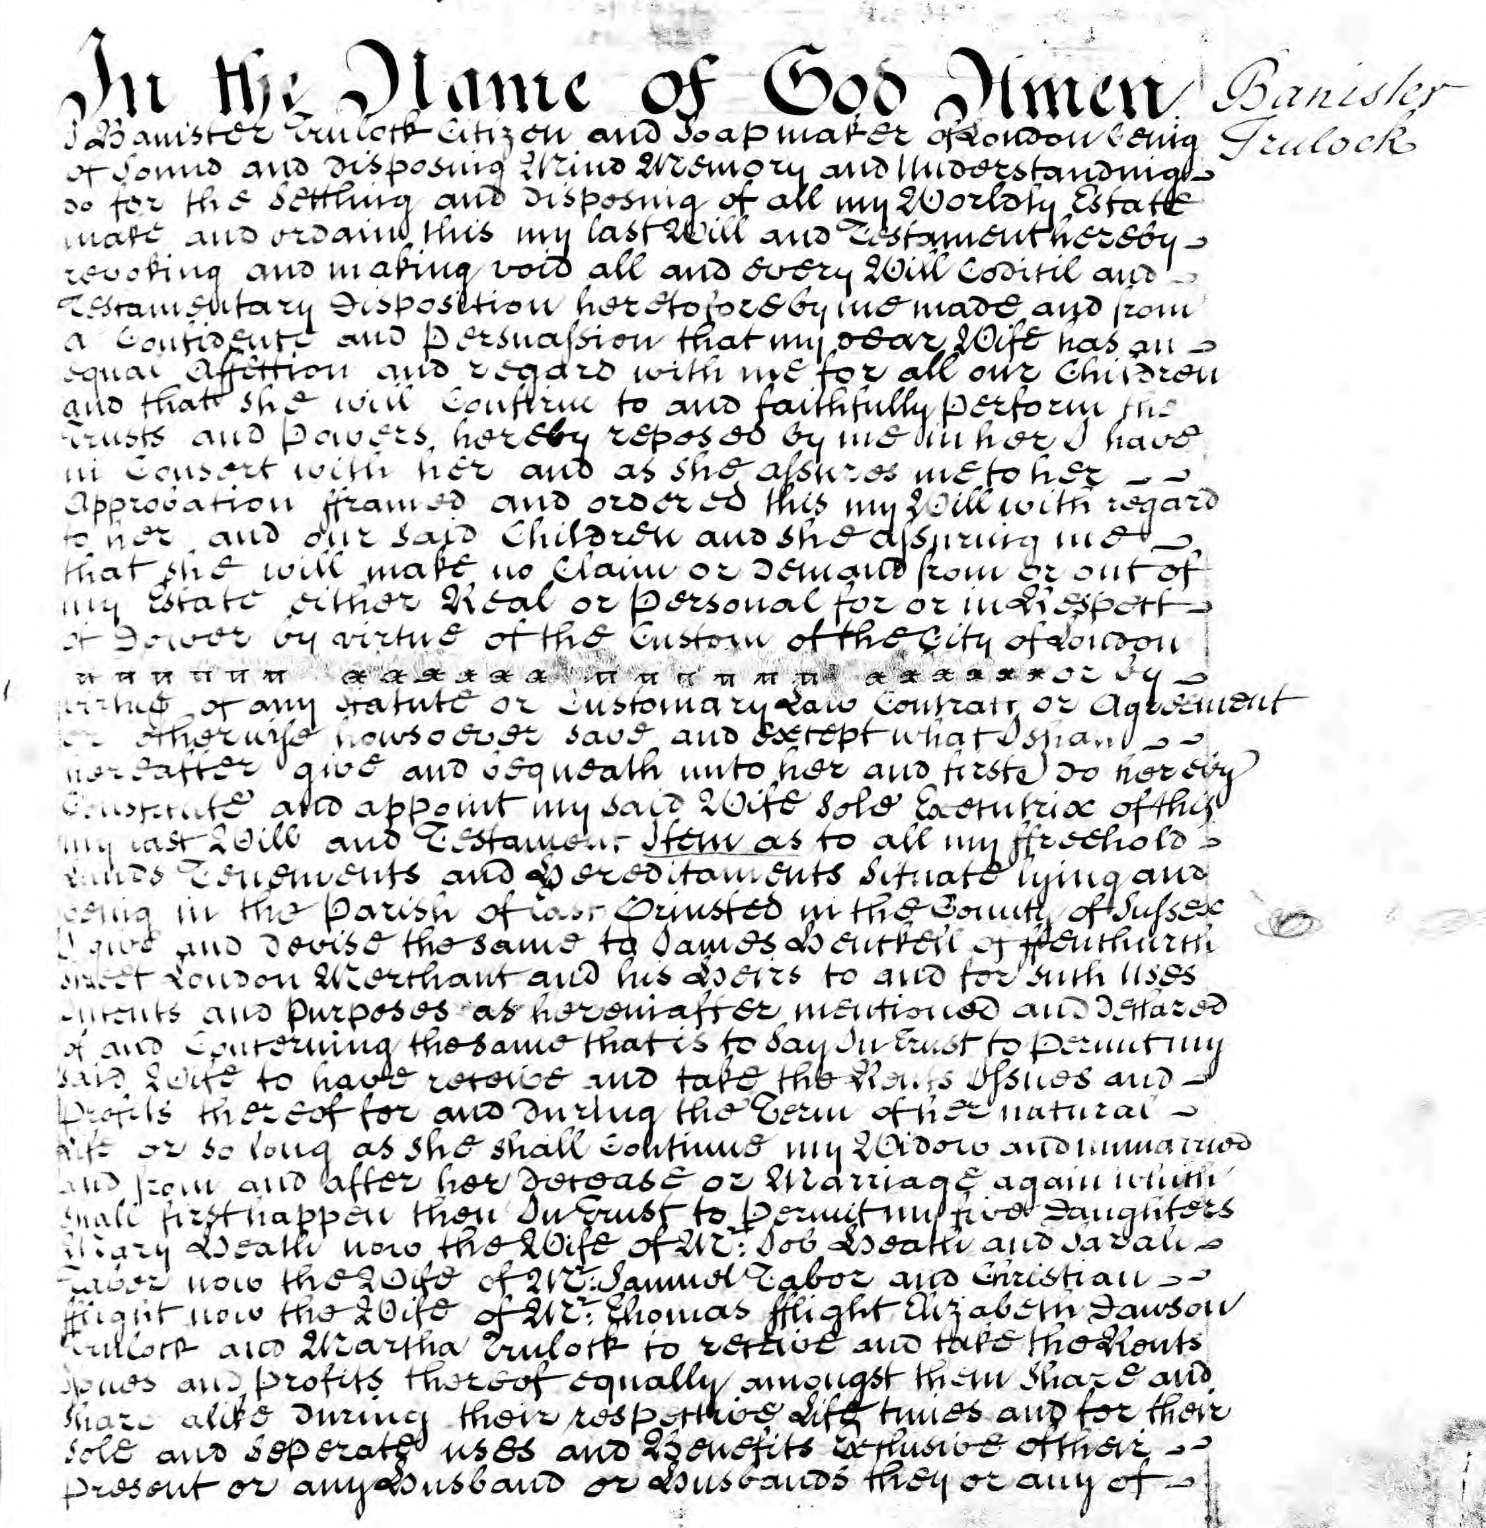 In the Name of God Amen
Banister
Trulock
I Banister Trulock Citizen and Soapmaker of London being
of Sound and disposing Mind Memory and Understanding
do for the Settling and disposing of all my Worldly Estate
make and ordain this my last Will and Testament hereby
revoking and making void all and every Will Codicil and
Testamentary Disposition heretofore by me made and from
a Confidence and Perswassion that my dear Wife has an
equal Affection and regard with me for all our Children
and that she will Confirm to and faithfully Perform the
Trusts and Powers hereby reposed by me in her I have
in Consort with her and as she assures me to her
Approbation fframed and ordered this my Will with regard
to her and our said Children and she assuring me
that she will make no Claim or demand from or out of
my Estate either Real or Personal for or in Respect
of Dower by virtue of the Custom of the City of London
or by
virtue of any Statute or Customary Law Contract or Agreement
or otherwise howsoever save and except what I shall
hereafter give and bequeath unto her and first I do hereby
Constitute and appoint my said Wife Sole Executrix of this
my last Will and Testament Item as to all my ffreehold
Lands Tenements and Hereditaments Situate lying and
being in the Parish of East Grinsted in the County of Sussex
I give and devise the same to James Henckell of ffenchurch
Street London Merchant and his Heirs to and for such Uses
Intents and Purposes as hereinafter mentioned and Declared
of and Concerning the same that is to Say In Trust to Permit my
said Wife to have receive and take the Rents Issues and
Profits thereof for and during the Term of her natural
Life or so long as she shall Continue my Widow and unmarried
and from and after her Decease or Marriage again which
shall first happen then In Trust to Permit my five Daughters
Mary Heath now the Wife of Mr: Job Heath and Sarah
Taber now the Wife of Mr: Samuel Tabor and Christian
fflight now the Wife of Mr: Thomas fflight Elizabeth Dawson
Trulock and Martha Trulock to receive and take the Rents
Issues and Profits thereof equally amongst them Share and
Share alike during their respective Life times and for their
Sole and Seperate uses and Benefits Exclusive of their
Present or any Husband or Husbands they or any of